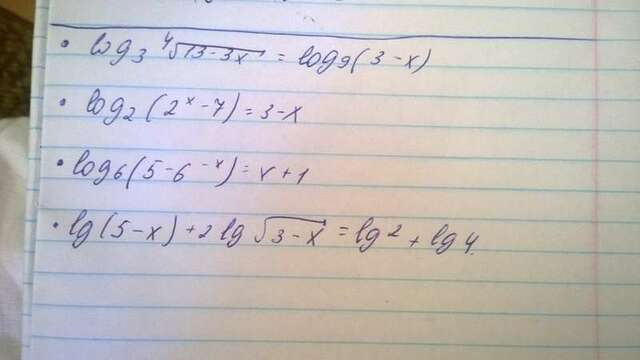 • log₃ ⁴√13-3x = log₉(3-x)
• log₂(2ˣ-7)=3-x
• log₆(5-6⁻ˣ)=x+1
• lg(5-x)+2lg√3-x = lg2+lg4.